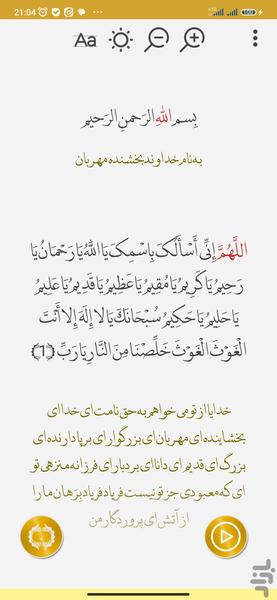 21:04
Aa
بِسمِ اللهِ الرَحمنِ الرَحیمِ
به نام خداوند بخشنده مهربان
اَللّهُمَّ اِنّی اَسأَلُکَ بِاسمِکَ یا اَللهُ یا رَحمانُ یا
رَحیمُ یا کَریمُ یا مُقیمُ یا عَظیمُ یا قَدیمُ یا عَلیمُ
یا حَلیمُ یا حَکیمُ سُبحانَکَ یا لا اِلهَ اِلا اَنتَ
الغَوثَ الغَوثَ خَلِّصنا مِنَ النّارِ یا رَبِّ (1)
خدایا از تو می خواهم به حق نامت ای خدا ای
بخشاینده ای مهربان ای بزرگوار ای برپا دارنده ای
بزرگ ای قدیم ای دانا ای بردبار ای فرزانه منزهی تو
ای که معبودی جز تو نیست فریاد فریاد برهان ما را
از آتش ای پروردگار من
بازار